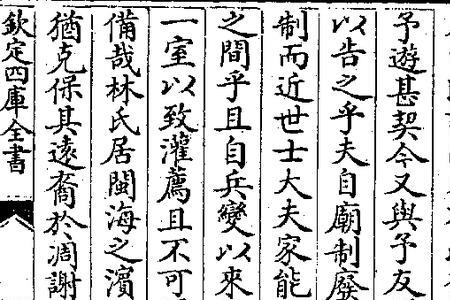 予遊甚契今又與予友
以告之乎夫自廟制廢
制而近世士大夫家能
之間乎且自兵變以來
一室以致灌薦且不可
備哉林氏居閩海之濵
猶克保其遠裔於凋謝
欽定四庫全書